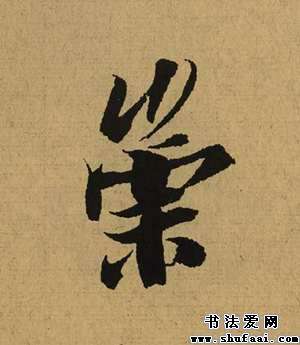 崇
书法爱网
www.shufaai.com